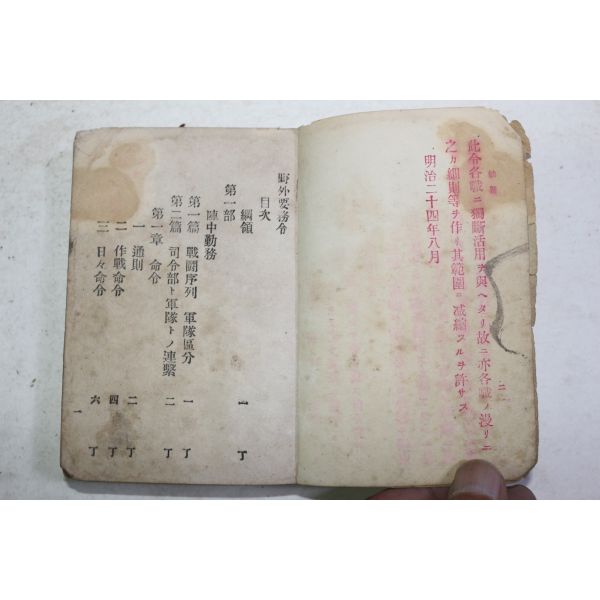 勅語
此令各職ニ獨斷活用ヲ與ヘタリ故ニ亦各職ノ漫リニ
之カ細則等ヲ作リ其範圍ヲ减縮スルヲ許サス
明治二十四年八月
二
野外要務令
目次
綱領 一丁
第一部
陣中勤務
第一篇 戰鬪序列 軍隊區分 一丁
第二篇 司令部ト軍隊トノ連繫 二丁
第一章 命令
一 通則 二丁
二 作戰命令 四丁
三 日々命令 六丁
一